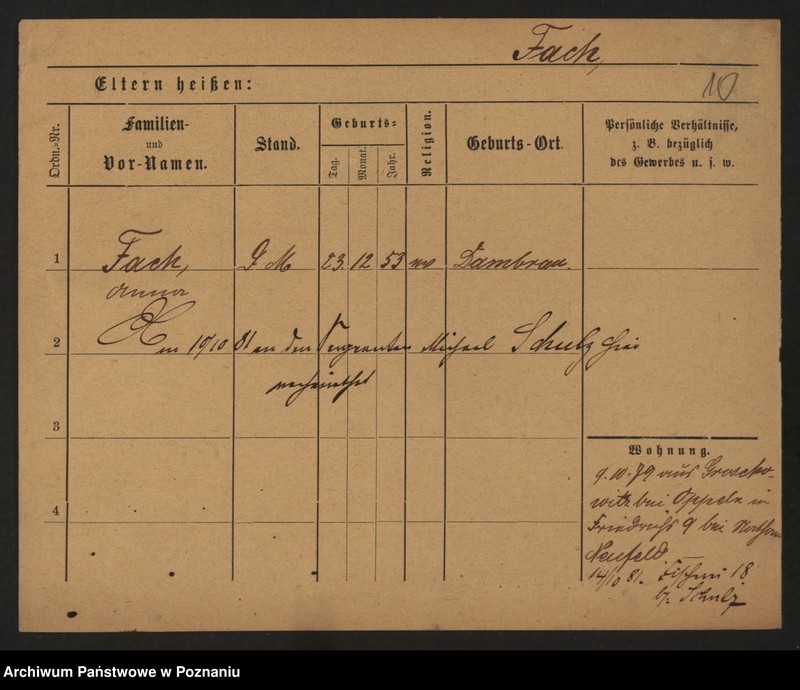 Fach,
10
Eltern heißen:
Ordn.-Nr.
Familien-
und
Vor-Namen.
Stand.
Geburts-
Tag.
Monat.
Jahr.
Religion.
Geburts-Ort.
Persönliche Verhältnisse,
z. B. bezüglich
des Gewerbes u. s. w.
1
Fach, D M 23. 12 53 Dambrau.
Anna
2
10/10 81 an den Sergeanten Michael Schulz hier
verheirathet
3
4
Wohnung.
9.10.79 aus Groscho-
witz bei Oppeln in
Friedrichs 9 bei
Neufeld
14/10 81. 18
b/ Schulz
Archiwum Państwowe w Poznaniu